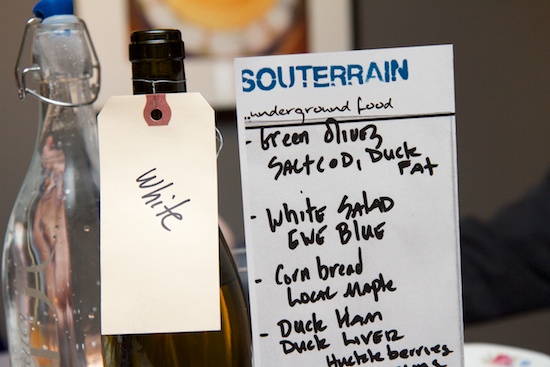 White
SOUTERRAIN
...underground food
- Green Olives
SALTCOD, Duck
FAT
- White SALAD
EWE BLUE
- Corn bread
Local Maple
- Duck HAM
Duck LIVER
Huckleberries